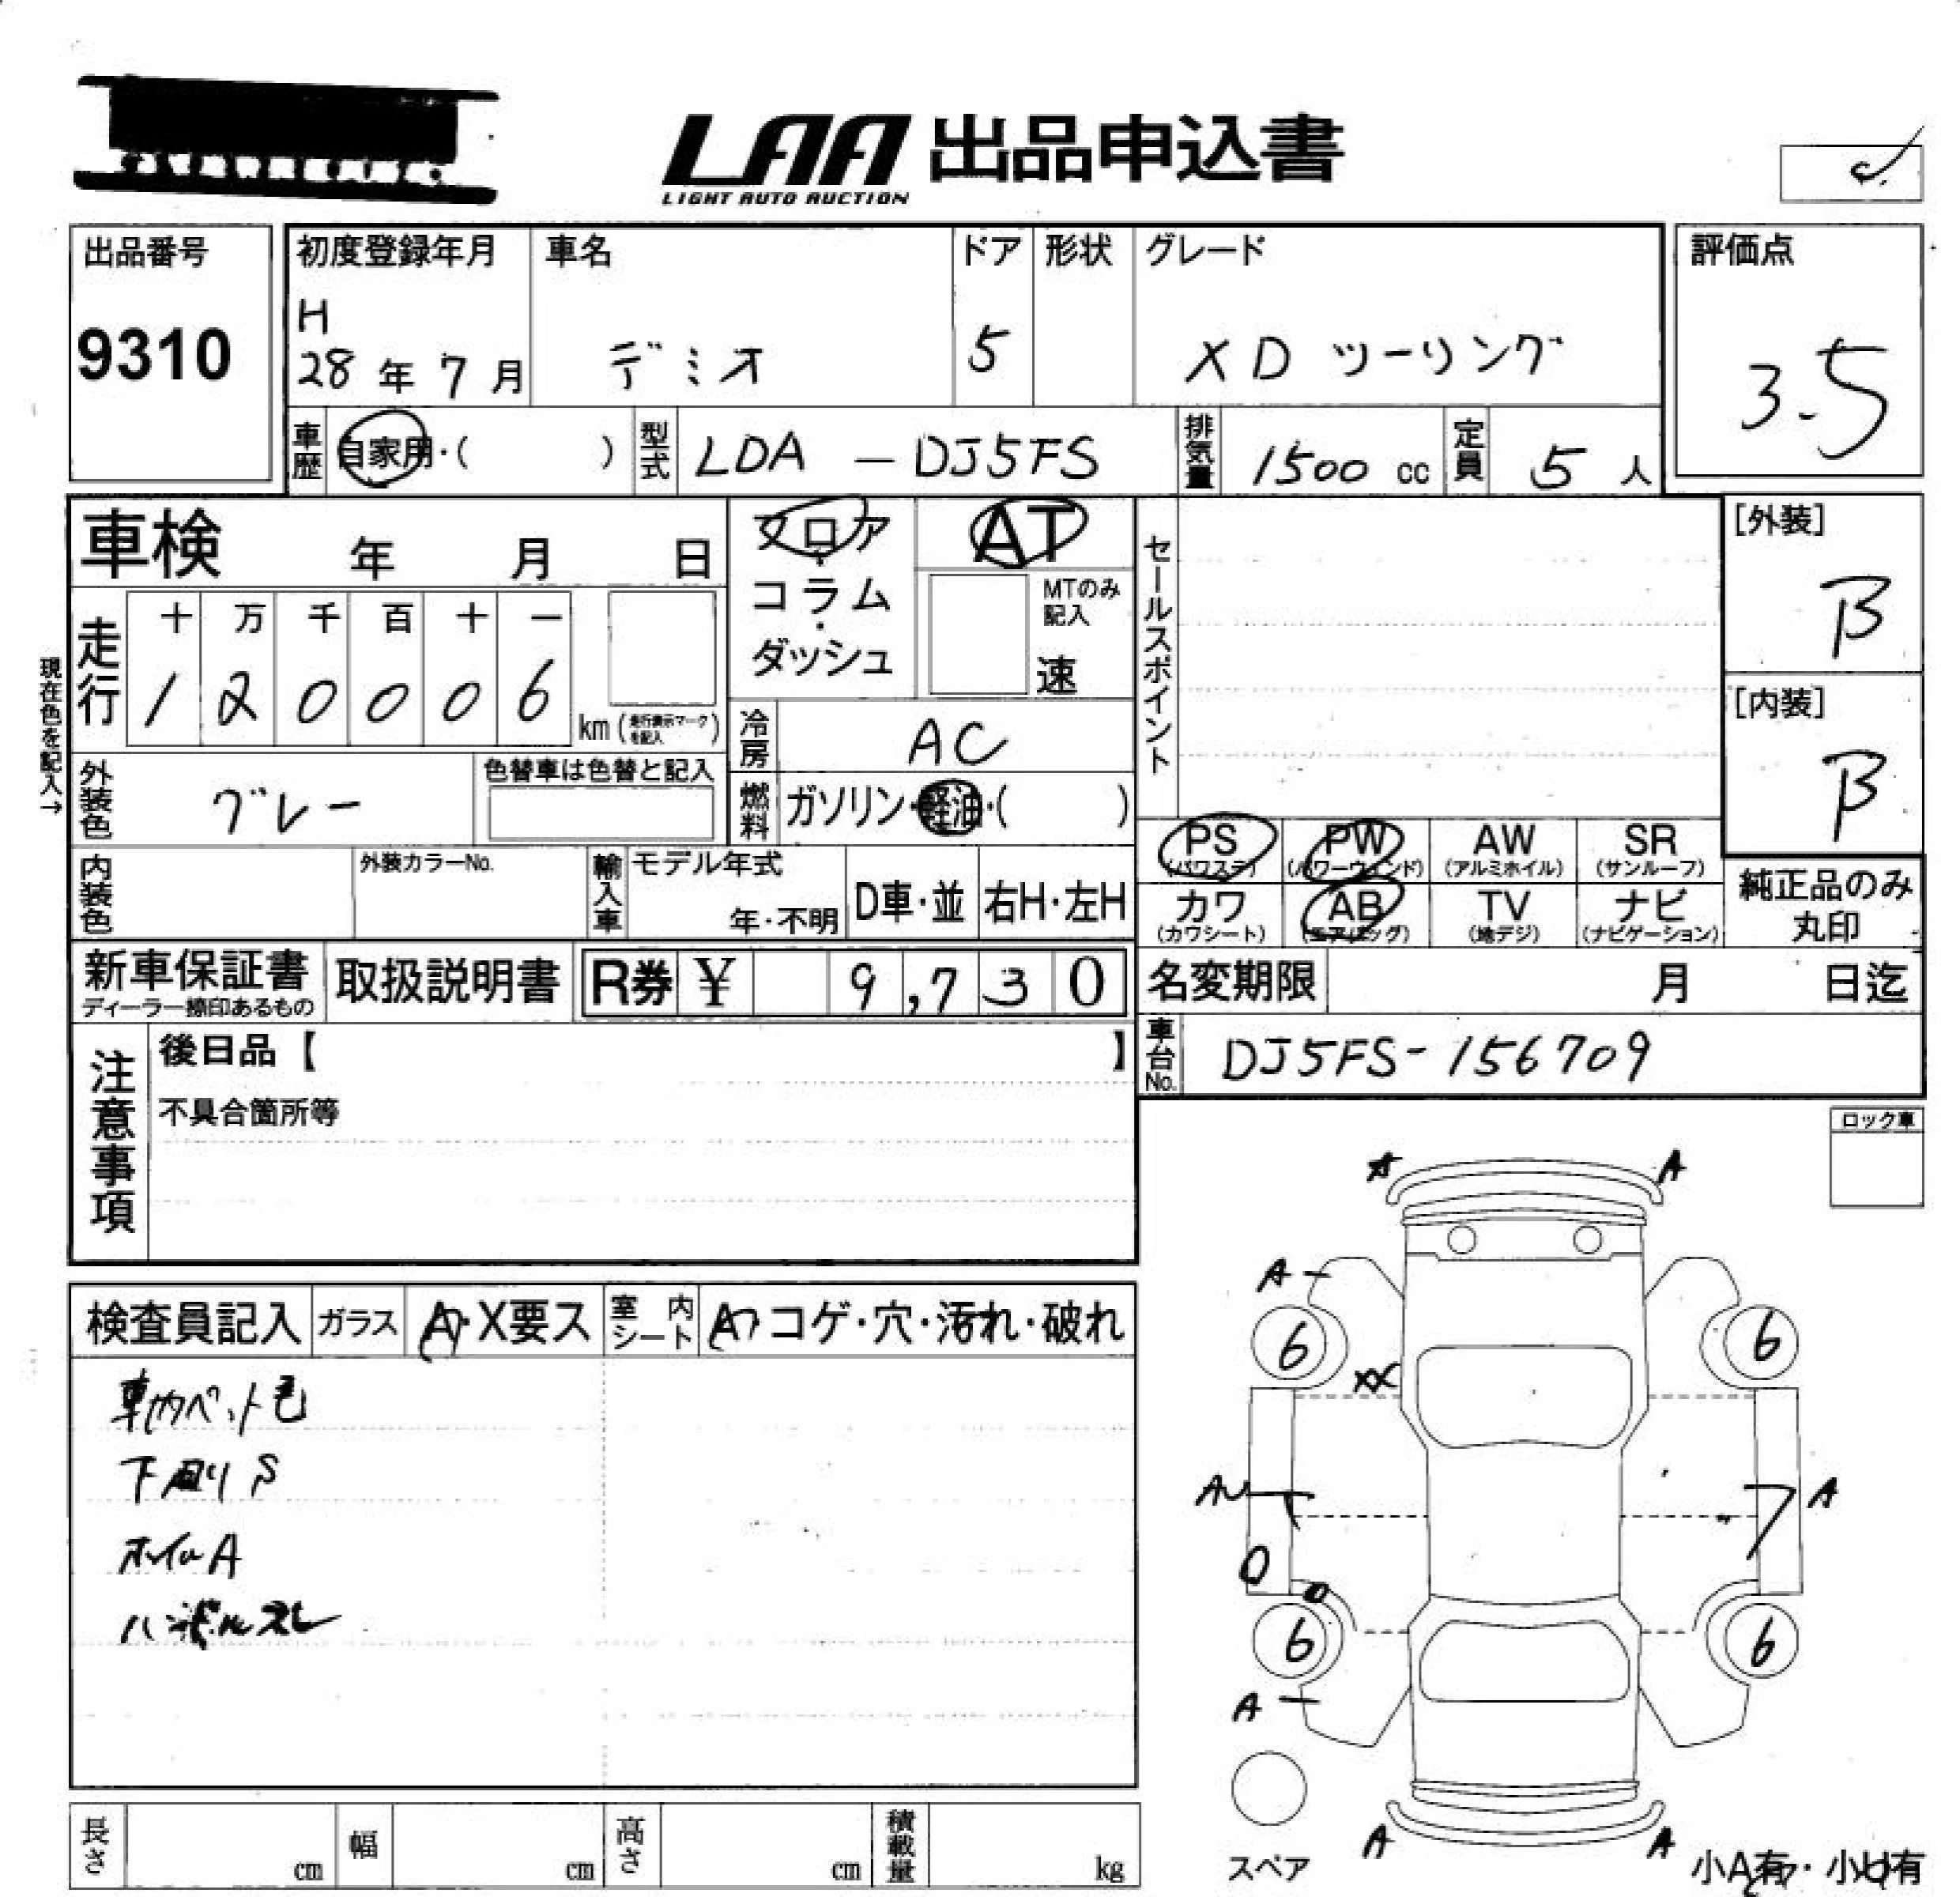 LAA 出品申込書
LIGHT AUTO AUCTION
出品番号
9310
初度登録年月
H
28年7月
車名
デミオ
ドア
5
形状
グレード
XD ツーリング
評価点
3.5
車歴 自家用・( )
型式 LDA - DJ5FS
排気量 1500 cc
定員 5 人
車検 年 月 日
フロア・コラム・ダッシュ
AT
MTのみ記入
速
セールスポイント
[外装]
B
[内装]
B
現在色を記入→
走行
十 万 千 百 十 一
1 2 0 0 0 6
km (走行表示マークを記入)
冷房 AC
外装色 グレー
色替車は色替と記入
燃料 ガソリン・軽油・( )
PS (パワステ)
PW (パワーウィンド)
AW (アルミホイル)
SR (サンルーフ)
カワ (カワシート)
AB (エアバッグ)
TV (地デジ)
ナビ (ナビゲーション)
純正品のみ
丸印
内装色
外装カラーNo.
輸入車
モデル年式
年・不明
D車・並
右H・左H
新車保証書
ディーラー捺印あるもの
取扱説明書
R券 ¥ 9,730
名変期限 月 日迄
車台No. DJ5FS-156709
注意事項
後日品【 】
不具合箇所等
ロック車
検査員記入
ガラス A・X要ス
室内シート A・コゲ・穴・汚れ・破れ
車内ペット毛
下廻りS
ホイルA
ハンドルスレ
A A
A
6 6
XX
AU A
6 6
A
スペア
A A
小A有・小U有
長さ cm
幅 cm
高さ cm
積載量 kg